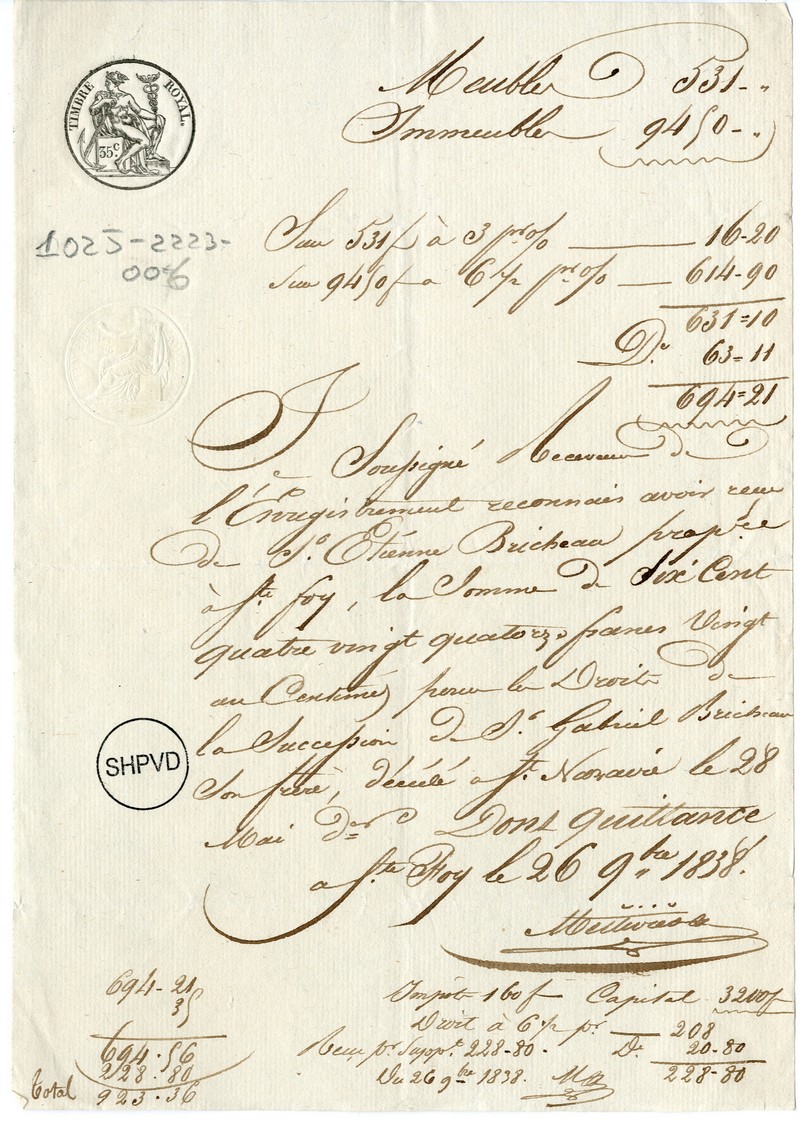 TIMBRE ROYAL.
35c.
Meubles 531-"
Immeubles 9450-"
1025-2223-
006
Sur 531f à 3 pr o/o 16-20
Sur 9450f a 6 ½ pr o/o 614-90
631=10
De 63=11
694=21
Je Soussigné Receveur de
l'Enregistrement reconnais avoir reçu
de Sr Etienne Bricheau propre
à Ste foy, la Somme de Six Cent
quatre vingt quatorze francs Vingt
un Centimes pour les Droits de
la Succession de Sr Gabriel Bricheau
Son frère, décédé a St Nazaire le 28
Mai der Dont quittance
a Ste Foy le 26 9bre 1838.
SHPVD
694-21
35
694.56
228.80
Total 923.36
Impôt 160f Capital 3200f
Droit à 6 ½ pr 208
Reçu pr Supplt 228-80. De 20-80
Du 26 9bre 1838. 228-80